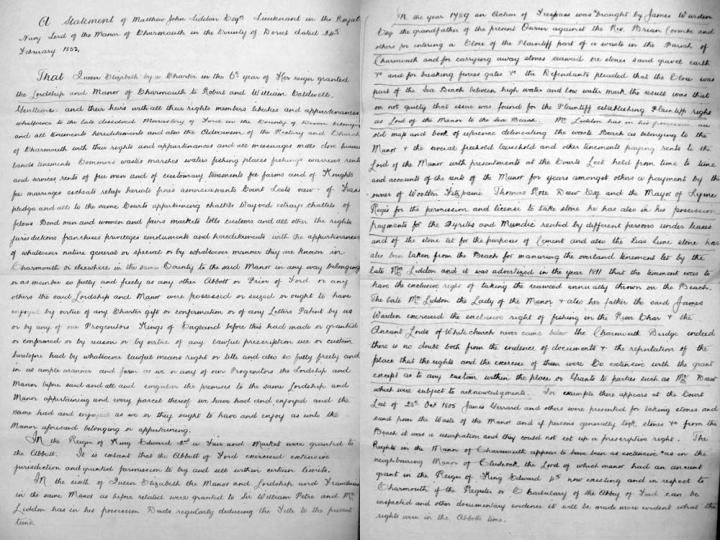 A Statement of Matthew John Liddon Esqre Lieutenant in the Royal
Navy Lord of the Manor of Charmouth in the County of Dorset dated 24th
February 1852.
That Queen Elizabeth by a Charter in the 6th year of Her reign granted
the Lordship and Manor of Charmouth to Robert and William Caldwell
Gentlemen and their heirs with all their rights members liberties and appurtenances
whatsoever to the late dissolved Monastery of Ford in the County of Devon belonging
and all tenements hereditaments and also the Advowson of the Rectory and Church
of Charmouth with their rights and appurtenances and all messuages mills
lands tenements Commons wastes marshes waters fishing places fishings warrens rents
and services rents of free men and of customary tenements fee farms and of Knights
fee marriages escheats reliefs heriots fines amerciaments Court Leets view of Frank
pledge and all to the same Courts appertaining chattels Waifs estrays chattels of
felons Bond men and women and fairs markets tolls customs and all other the rights
jurisdictions franchises privileges emoluments and hereditaments with the appurtenances
of whatsoever nature general or special or by whatsoever manner they are known in
Charmouth or elsewhere in the same County to the said Manor in any way belonging
or as member so fully and freely as any other Abbott or Prior of Ford or any
others the said Lordship and Manor were possessed or seized or ought to have
enjoyed by virtue of any Charter gift or confirmation or of any Letters Patent by us
or by any of our Progenitors Kings of England before this had made or granted
or confirmed or by reason or by virtue of any lawful prescription use or custom
heretofore had by whatsoever lawful means right or title and also so fully freely and
in as ample manner and form as we or any of our Progenitors the Lordship and
Manor before said and all and singular the premises to the same Lordship and
Manor appertaining and every parcel thereof we have had and enjoyed and the
same had and enjoyed as we or they ought to have and enjoy as unto the
Manor aforesaid belonging or appertaining.
In the Reign of King Edward 1st a Fair and Market were granted to
the Abbott. It is extant that the Abbott of Ford exercised extensive
jurisdiction and granted permission to buy and sell within certain limits.
In the sixth of Queen Elizabeth the Manor and Lordship and Franchises
in the same Manor as before related were granted to Sir William Petre and Mr
Liddon has in his possession Deeds regularly deducing the Title to the present
time.
In the year 1789 an Action of Trespass was brought by James Warden
Esq the grandfather of the present Owner against the Rev. Brian Combe and
others for entering a Close of the Plaintiff part of a waste in the Parish of
Charmouth and for carrying away stones seaweed ore stones sand gravel earth
& and for breaking fences gates & the Defendants pleaded that the Close was
part of the Sea Beach between high water and low water mark the result was that
on not guilty that issue was found for the Plaintiff establishing Plaintiff right
as Lord of the Manor to the Sea Beach. Mr Liddon has in his possession an
old map and book of reference delineating the waste Beach as belonging to the
Manor & the several freehold leasehold and other tenements paying rents to the
Lord of the Manor with presentments at the Courts Leet held from time to time
and accounts of the rents of the Manor for years amongst others a payment by the
owner of Wootton Fitzpaine Thomas Rose Drew Esq and the Mayor of Lyme
Regis for the permission and license to take stone he has also in his possession
payments for the Pyrites and Mundic rented by different persons under leases
and of the stone let for the purposes of Cement and also the Lias lime stone has
also been taken from the Beach for manuring the overland tenement let by the
late Mr Liddon and it was advertised in the year 1811 that the tenement was to
have the exclusive right of taking the seaweed annually thrown on the Beach.
The late Mrs Liddon the Lady of the Manor & also her father the said James
Warden exercised the exclusive right of fishing in the River Char & the
Ancient Lords of Whitchurch never came below the Charmouth Bridge indeed
there is no doubt both from the evidence of documents & the reputation of the
place that the rights and the exercise of them were Co extensive with the grant
except as to any custom within the place or Grants to parties such as Mr Drew
which were subject to acknowledgments. For example there appears at the Court
Leet of 25th Oct 1805 James Gerrard and others were presented for taking stones and
sand from the Waste of the Manor and if persons generally took stones & from the
Beach it was a usurpation and they could not set up a prescriptive right. The
Rights in the Manor of Charmouth appear to have been as extensive as in the
neighbouring Manor of Chideock the Lord of which manor had an ancient
grant in the Reign of King Edward 4th now existing and in respect to
Charmouth if the Register or Cartulary of the Abbey of Ford can be
inspected and other documentary evidence it will be made more evident what the
rights were in the Abbotts time.